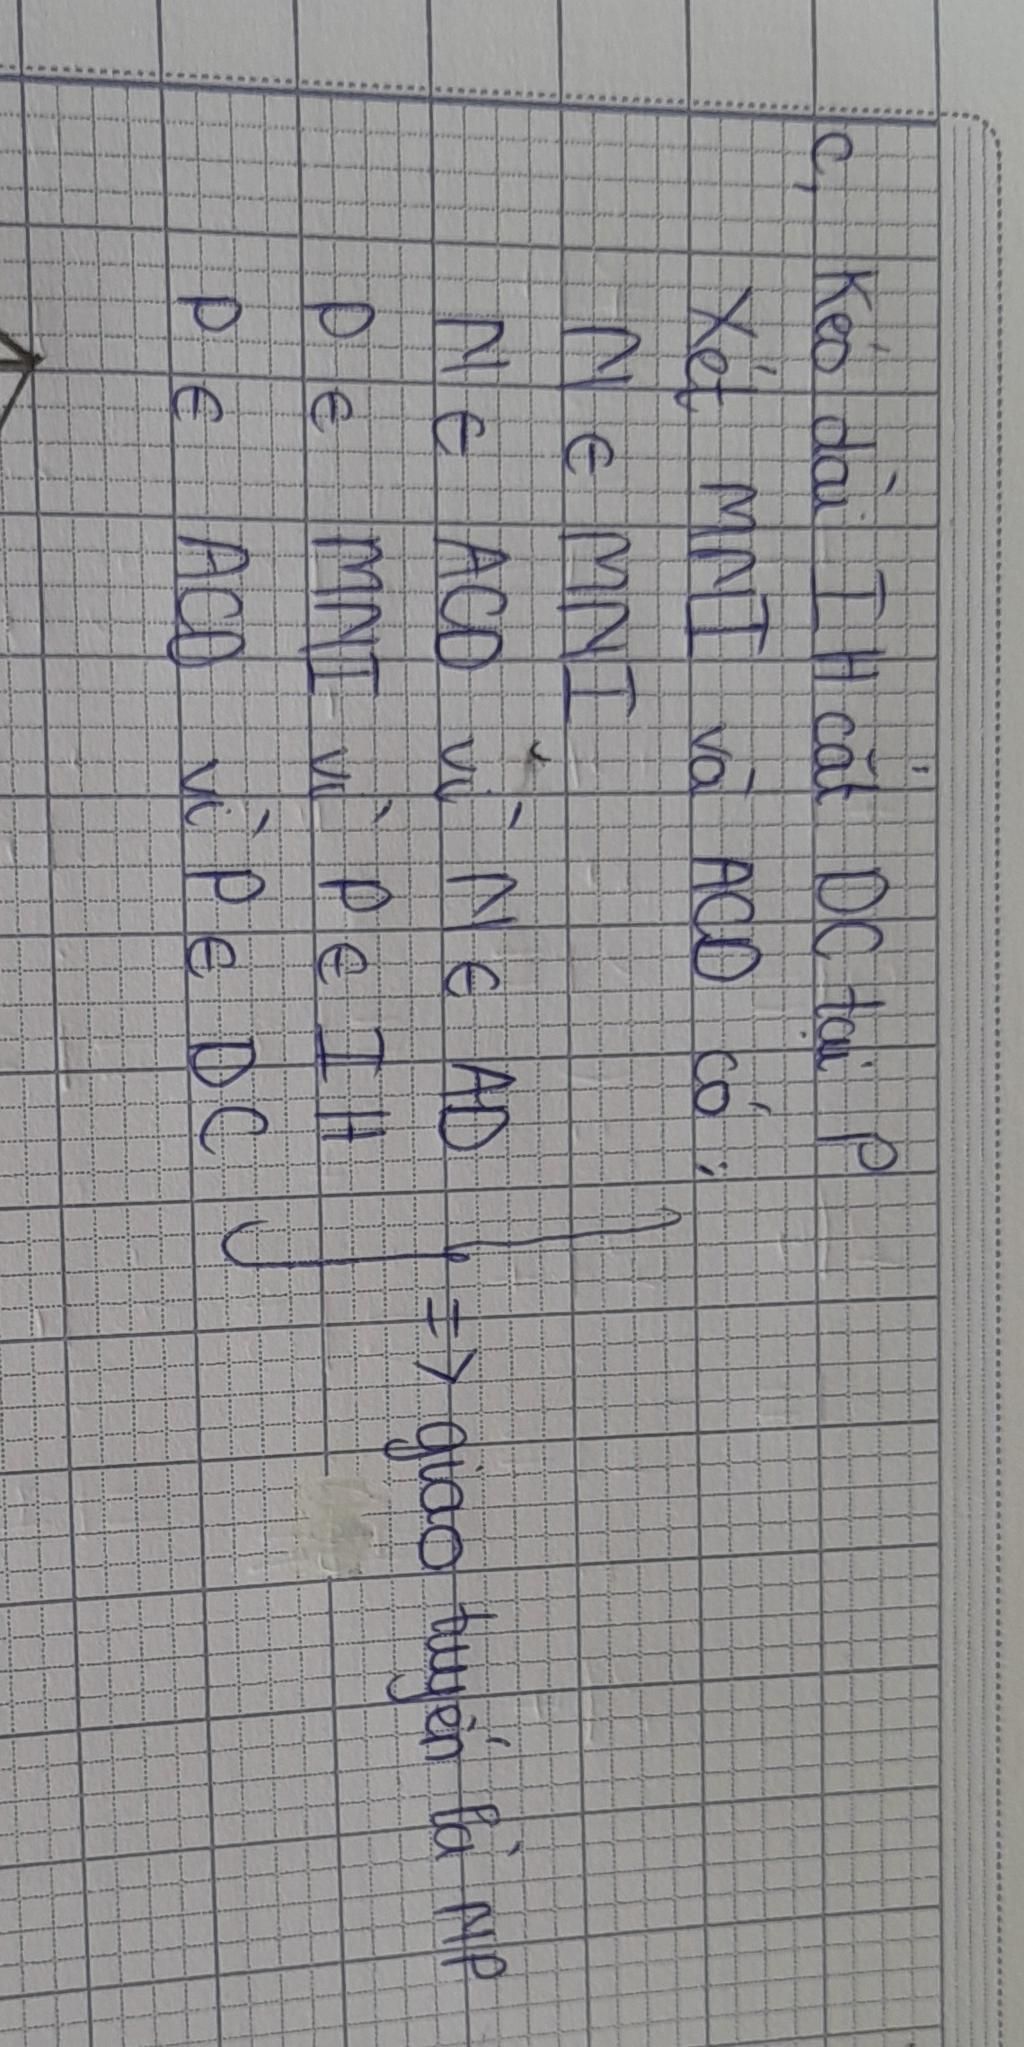 c, Kéo dài IH cắt DC tại P
Xét MNI và ACD có :
N ∈ MNI
N ∈ ACD vì N ∈ AD
P ∈ MNI vì P ∈ IH
P ∈ ACD vì P ∈ DC
=> giao tuyến là NP